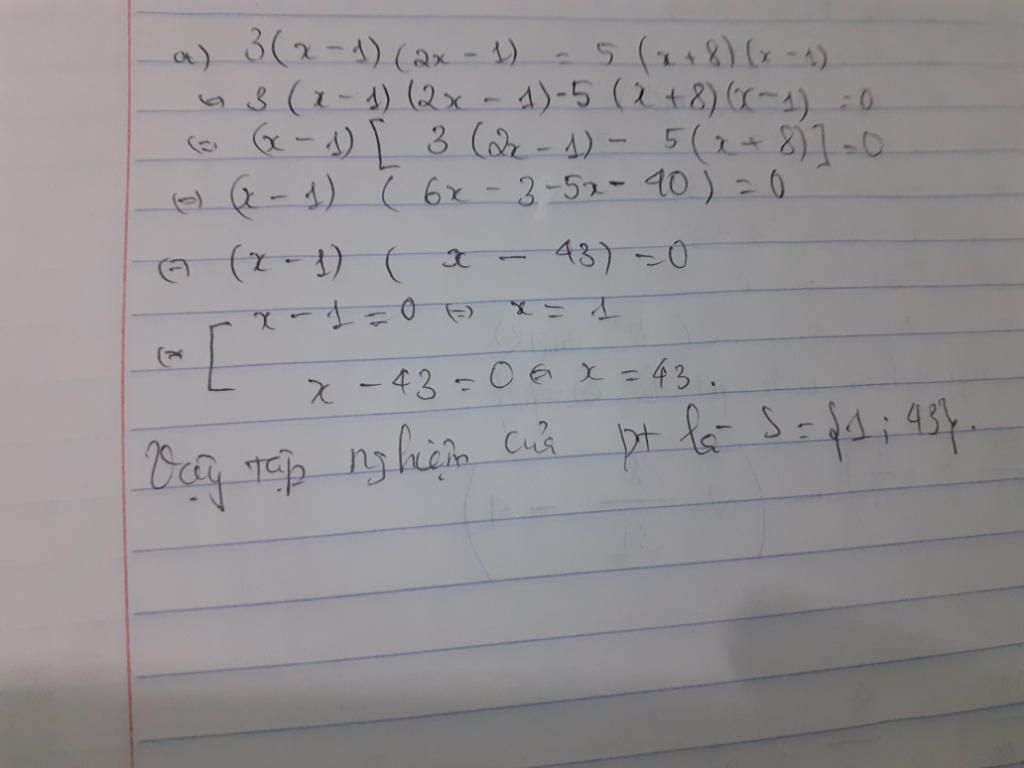 a) 3(x-1)(2x-1) = 5(x+8)(x-1)
⇔ 3(x-1)(2x-1)-5(x+8)(x-1) = 0
⇔ (x-1)[3(2x-1)- 5(x+8)] = 0
⇔ (x-1)(6x-3-5x-40) = 0
⇔ (x-1)(x-43) = 0
⇔ [ x-1=0 ⇔ x=1
x-43=0 ⇔ x=43.
Vậy tập nghiệm của pt là S={1;43}.